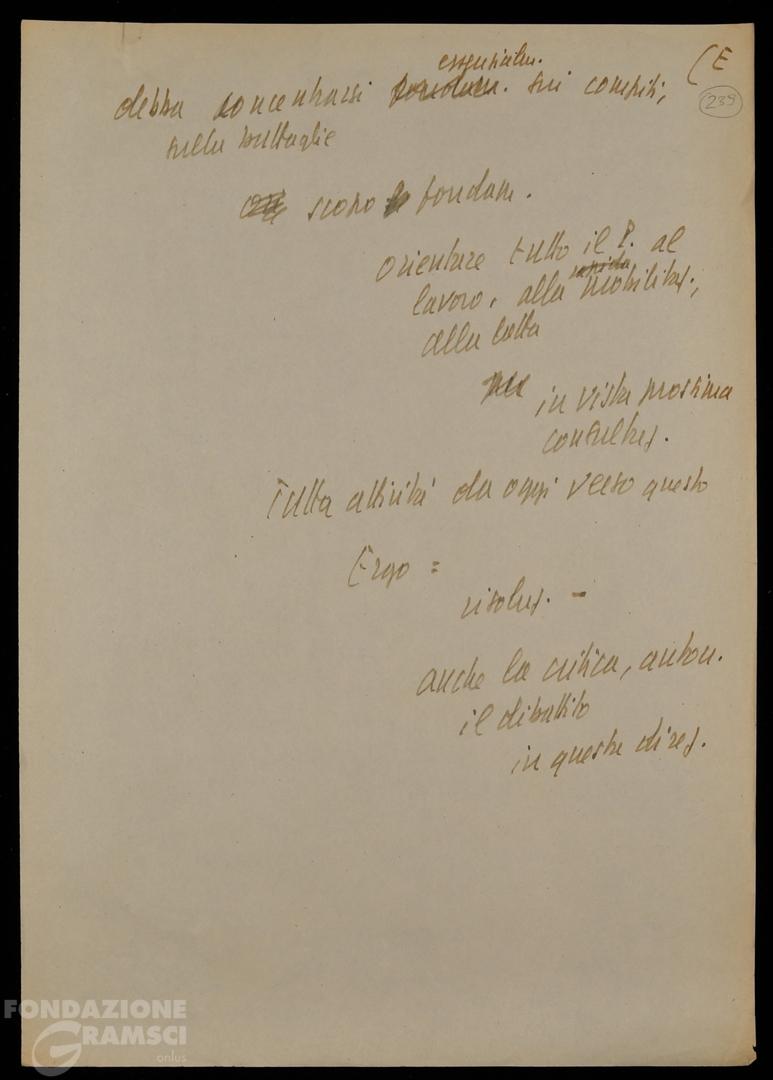 essenzialm. (E
debba concentrarsi fondam. sui compiti, 239
sulla battaglie
scopo fondam.
orientare tutto il P. al
rapida
lavoro, alla mobilitaz.,
alla lotta
in vista prossima
consultaz.
Tutta attività da oggi verso questo
Ergo =
risoluz. -
anche la critica, autocr.
il dibattito
in questa direz.
FONDAZIONE
GRAMSCI
onlus